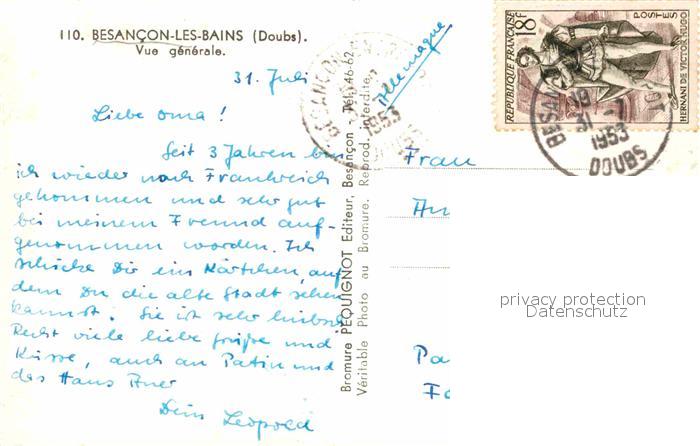 110. BESANÇON-LES-BAINS (Doubs).
Vue générale.
31. Juli
Liebe Oma!
Seit 3 Jahren bin
ich wieder nach Frankreich
gekommen und sehr gut
bei meinem Freund auf-
genommen worden. Ich
schicke Dir ein Kärtchen, auf
dem Du die alte Stadt sehen
kannst. Sie ist sehr hübsch.
Recht viele liebe Grüße und
Küsse, auch an Patin und
das Haus
Dein Leopold
Bromure PEQUIGNOT Editeur, Besançon - Tél. 46-62
Véritable Photo au Bromure. Reprod. interdite.
Allemagne
Frau
An
Pa
REPUBLIQUE FRANÇAISE
18F
POSTES
HERNANI DE VICTOR HUGO
BESANÇON
1953
DOUBS
1953
privacy protection
Datenschutz